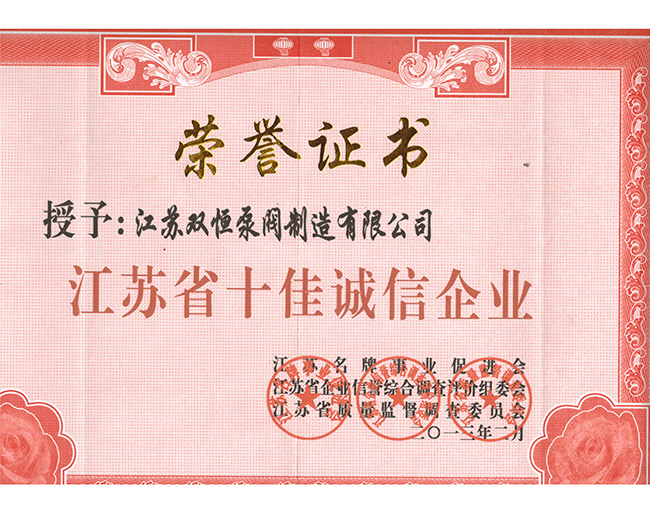 荣誉证书
授予:江苏双恒泵阀制造有限公司
江苏省十佳诚信企业
江苏名牌事业促进会
江苏省企业信誉综合调查评价组委会
江苏省质量监督调查委员会
二〇一三年二月